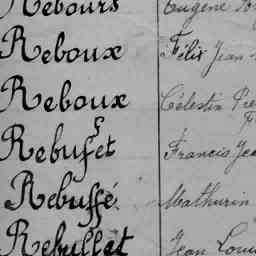 Rebours Eugène
Reboux Félix Jean
Reboux Célestin
Rebuffet Francis
Rebuffé Mathurin
Rebullet Jean Louis